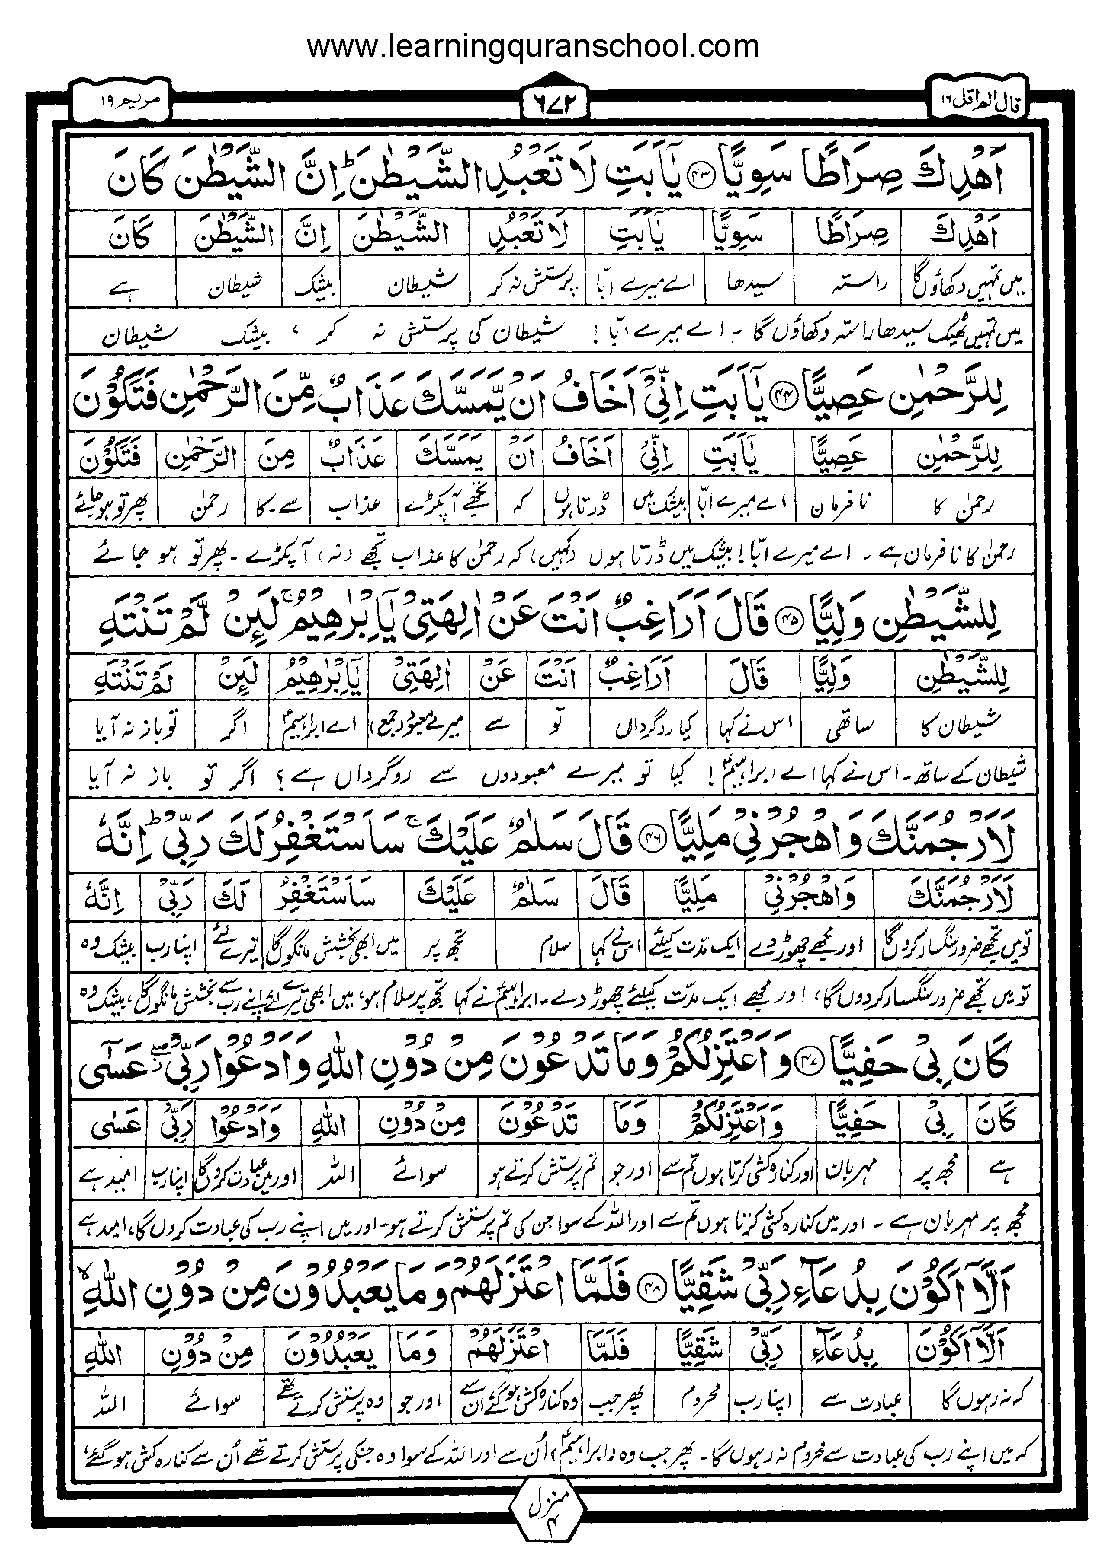 www.learningquranschool.com
قال الم اقل ١٦
٦٧٢
مریم ١٩
اَهْدِكَ صِرَاطًا سَوِیًّا ﴿۴۳﴾ یٰۤاَبَتِ لَا تَعْبُدِ الشَّیْطٰنَ ؕ اِنَّ الشَّیْطٰنَ كَانَ
اَهْدِكَ صِرَاطًا سَوِیًّا یٰۤاَبَتِ لَا تَعْبُدِ الشَّیْطٰنَ اِنَّ الشَّیْطٰنَ كَانَ
میں تمہیں دکھاؤں گا راستہ سیدھا اے میرے ابّا پرستش نہ کر شیطان بیشک شیطان ہے
میں تمہیں ٹھیک سیدھا راستہ دکھاؤں گا ۔ اے میرے ابّا ! شیطان کی پرستش نہ کر ، بیشک شیطان
لِلرَّحْمٰنِ عَصِیًّا ﴿۴۴﴾ یٰۤاَبَتِ اِنِّیْۤ اَخَافُ اَنْ یَّمَسَّكَ عَذَابٌ مِّنَ الرَّحْمٰنِ فَتَكُوْنَ
لِلرَّحْمٰنِ عَصِیًّا یٰۤاَبَتِ اِنِّیْۤ اَخَافُ اَنْ یَمَسَّكَ عَذَابٌ مِنَ الرَّحْمٰنِ فَتَكُوْنَ
رحمٰن کا نافرمان اے میرے ابّا بیشک میں ڈرتا ہوں کہ تجھے آپکڑے عذاب سے۔کا رحمٰن پھر تو ہو جائے
رحمٰن کا نافرمان ہے ۔ اے میرے ابّا ! بیشک میں ڈرتا ہوں (کہیں) کہ رحمٰن کا عذاب تجھے (نہ) آپکڑے ۔ پھر تو ہو جائے
لِلشَّیْطٰنِ وَلِیًّا ﴿۴۵﴾ قَالَ اَرَاغِبٌ اَنْتَ عَنْ اٰلِهَتِیْ یٰۤاِبْرٰهِیْمُ ۚ لَئِنْ لَّمْ تَنْتَهِ
لِلشَّیْطٰنِ وَلِیًّا قَالَ اَرَاغِبٌ اَنْتَ عَنْ اٰلِهَتِیْ یٰۤاِبْرٰهِیْمُ لَئِنْ لَمْ تَنْتَهِ
شیطان کا ساتھی اس نے کہا کیا روگرداں تو سے میرے معبود (جمع) اے ابراہیمؑ اگر تو باز نہ آیا
شیطان کے ساتھ ۔ اس نے کہا اے ابراہیمؑ ! کیا تو میرے معبودوں سے روگرداں ہے ؟ اگر تو باز نہ آیا
لَاَرْجُمَنَّكَ وَاهْجُرْنِیْ مَلِیًّا ﴿۴۶﴾ قَالَ سَلٰمٌ عَلَیْكَ ۚ سَاَسْتَغْفِرُ لَكَ رَبِّیْ ؕ اِنَّهٗ
لَاَرْجُمَنَّكَ وَاهْجُرْنِیْ مَلِیًّا قَالَ سَلٰمٌ عَلَیْكَ سَاَسْتَغْفِرُ لَكَ رَبِّیْ اِنَّهٗ
تو میں تجھے ضرور سنگسار کردوں گا اور مجھے چھوڑ دے ایک مدّت کیلئے اس نے کہا سلام تجھ پر میں ابھی بخشش مانگوں گا تیرے لئے اپنا رب بیشک وہ
تو میں تجھے ضرور سنگسار کردوں گا، اور مجھے ایک مدّت کیلئے چھوڑ دے ۔ ابراہیمؑ نے کہا تجھ پر سلام ہو، میں ابھی تیرے لئے اپنے رب سے بخشش مانگوں گا، بیشک وہ
كَانَ بِیْ حَفِیًّا ﴿۴۷﴾ وَاَعْتَزِلُكُمْ وَمَا تَدْعُوْنَ مِنْ دُوْنِ اللّٰهِ وَاَدْعُوْا رَبِّیْ ۖ عَسٰۤی
كَانَ بِیْ حَفِیًّا وَاَعْتَزِلُكُمْ وَمَا تَدْعُوْنَ مِنْ دُوْنِ اللّٰهِ وَاَدْعُوْا رَبِّیْ عَسٰی
ہے مجھ پر مہربان اور کنارہ کشی کرتا ہوں تم سے اور جو تم پرستش کرتے ہو سوائے اللہ اور میں عبادت کروں گا اپنا رب امید ہے
مجھ پر مہربان ہے ۔ اور میں کنارہ کشی کرتا ہوں تم سے اور اللہ کے سوا جن کی تم پرستش کرتے ہو۔ اور میں اپنے رب کی عبادت کروں گا، امید ہے
اَلَّاۤ اَكُوْنَ بِدُعَآءِ رَبِّیْ شَقِیًّا ﴿۴۸﴾ فَلَمَّا اعْتَزَلَهُمْ وَمَا یَعْبُدُوْنَ مِنْ دُوْنِ اللّٰهِ ۙ
اَلَّاۤ اَكُوْنَ بِدُعَآءِ رَبِّیْ شَقِیًّا فَلَمَّا اعْتَزَلَهُمْ وَمَا یَعْبُدُوْنَ مِنْ دُوْنِ اللّٰهِ
کہ نہ رہوں گا عبادت سے اپنا رب محروم پھر جب وہ کنارہ کش ہو گئے ان سے اور جو وہ پرستش کرتے تھے سوائے اللہ
کہ میں اپنے رب کی عبادت سے محروم نہ رہوں گا ۔ پھر جب وہ (ابراہیمؑ) اُن سے اور اللہ کے سوا وہ جنکی پرستش کرتے تھے اُن سے کنارہ کش ہو گئے،
منزل ۴